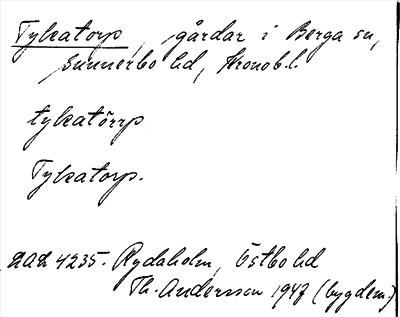 Tykatorp, gårdar i Berga sn,
Sunnerbo hd, Kronob.l.
tykatŏrp
Tykatorp.
4235. Rydaholm, Östbo hd
Th. Andersson 1947 (bygdem.)